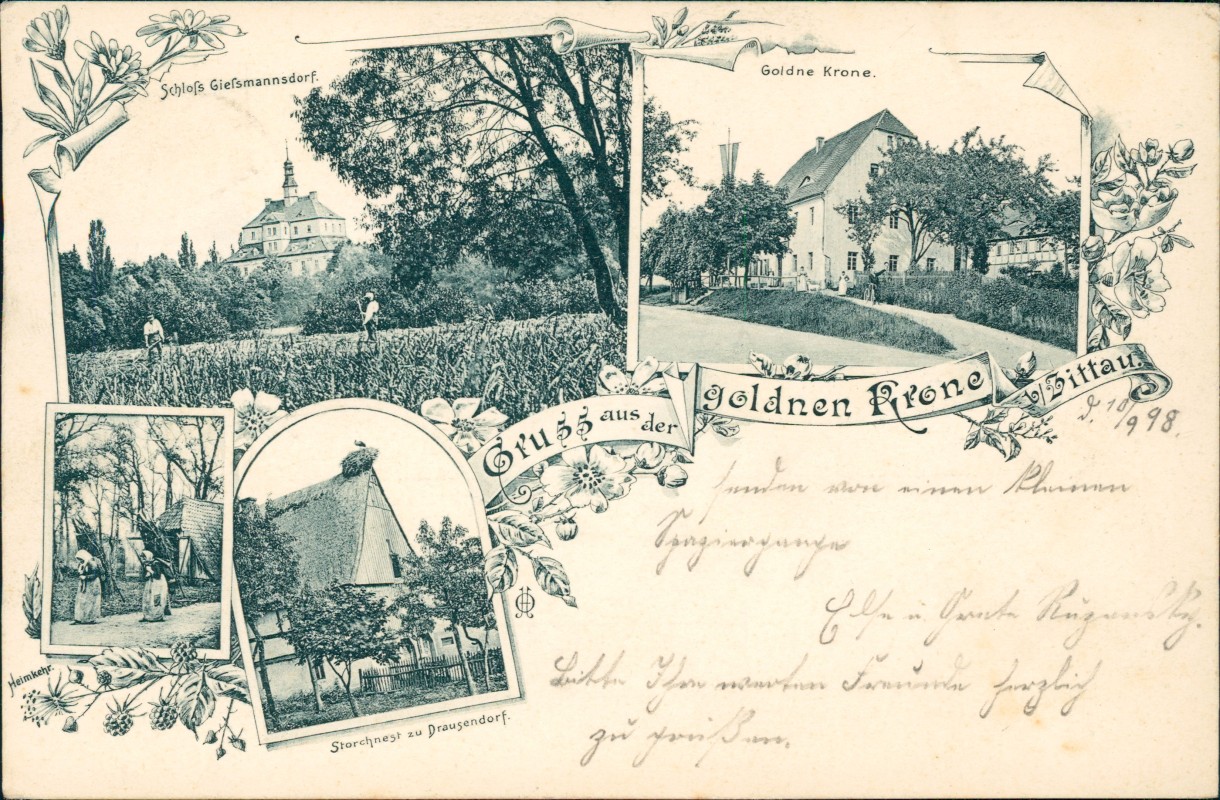 Schloſs Gieſsmannsdorf.
Goldne Krone.
Gruss aus der goldnen Krone b/Zittau.
d. 10/9 98.
senden von einen kleinen
Spaziergange
Else u. Grete
Bitte Ihre werten Freunde herzlich
zu grüßen.
Heimkehr.
Storchnest zu Drausendorf.